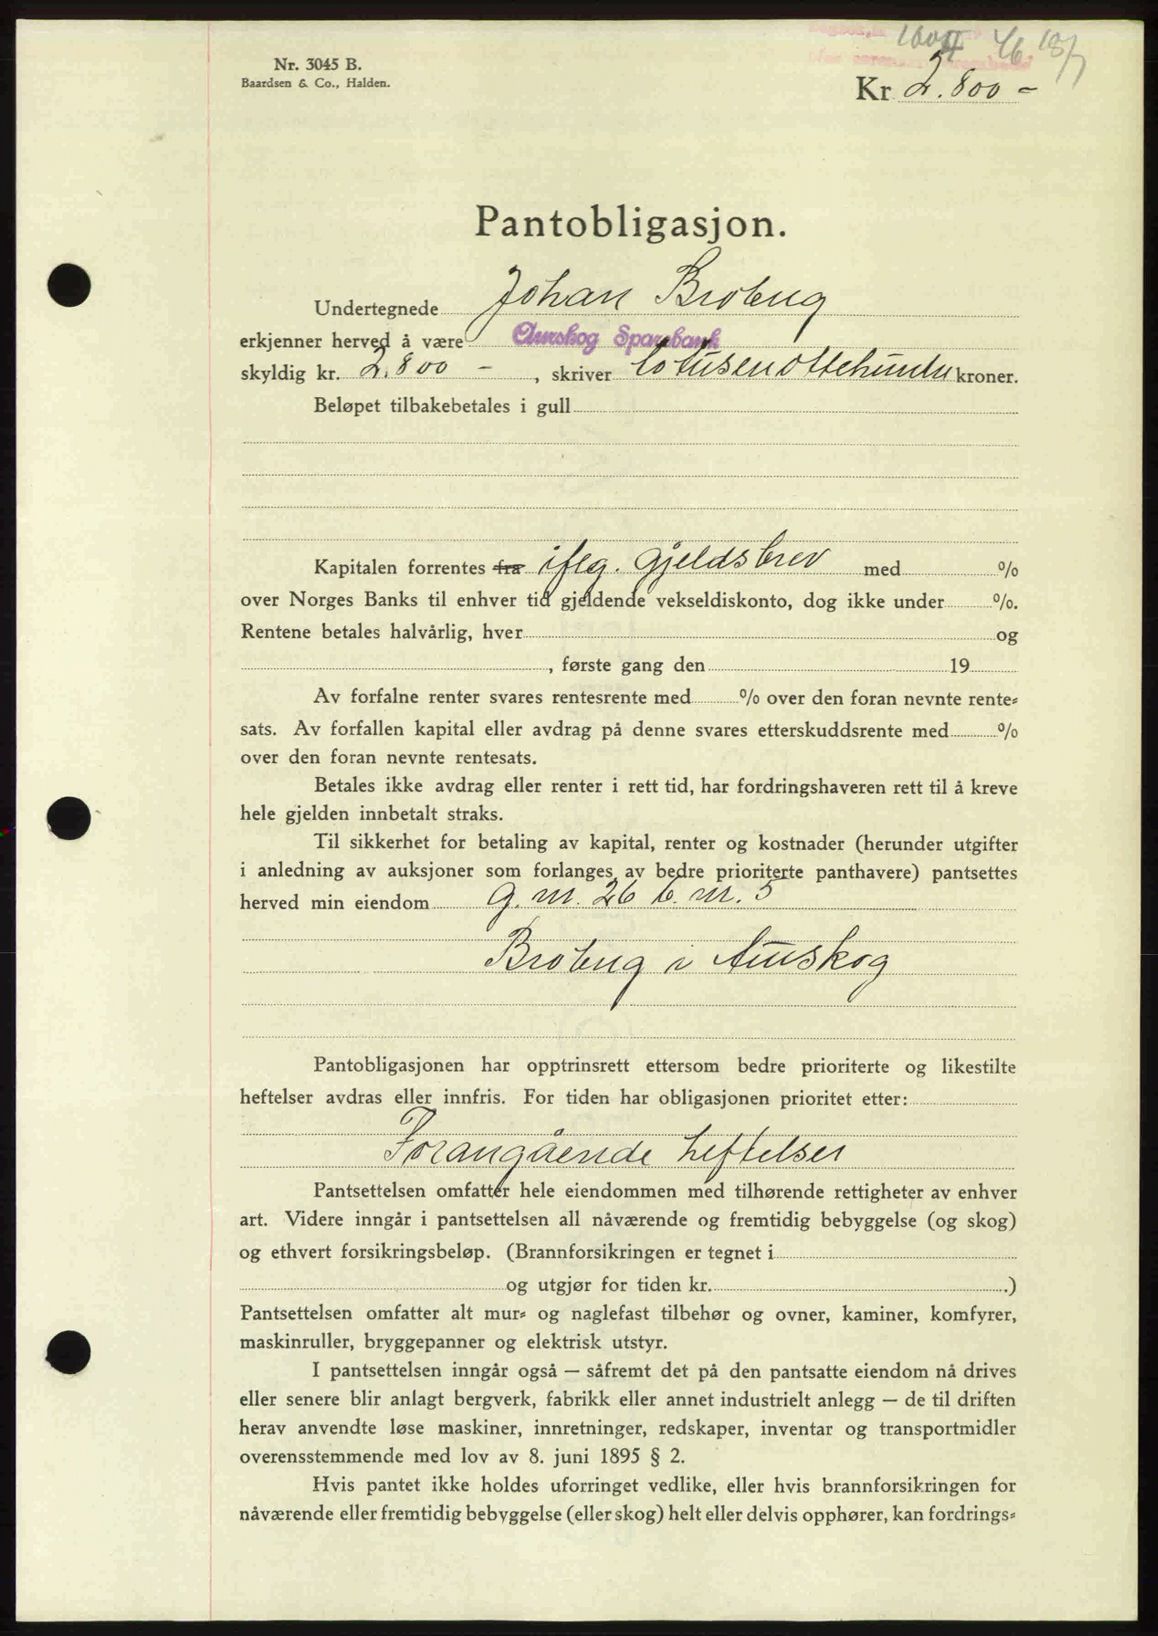 1600 46 18/7
Nr. 3045 B.
Baardsen & Co., Halden.
Kr 2.800 -
Pantobligasjon.
Undertegnede Johan Brobug
erkjenner herved å være Aurskog Sparebank
skyldig kr. 2.800 - , skriver totusenottehundre kroner.
Beløpet tilbakebetales i gull
Kapitalen forrentes fra iflg. gjeldsbrev med %
over Norges Banks til enhver tid gjeldende vekseldiskonto, dog ikke under %.
Rentene betales halvårlig, hver og
, første gang den 19
Av forfalne renter svares rentesrente med % over den foran nevnte rente-
sats. Av forfallen kapital eller avdrag på denne svares etterskuddsrente med %
over den foran nevnte rentesats.
Betales ikke avdrag eller renter i rett tid, har fordringshaveren rett til å kreve
hele gjelden innbetalt straks.
Til sikkerhet for betaling av kapital, renter og kostnader (herunder utgifter
i anledning av auksjoner som forlanges av bedre prioriterte panthavere) pantsettes
herved min eiendom g. nr. 26 b. nr. 5
Brobug i Aurskog
Pantobligasjonen har opptrinsrett ettersom bedre prioriterte og likestilte
heftelser avdras eller innfris. For tiden har obligasjonen prioritet etter:
Forangående heftelser
Pantsettelsen omfatter hele eiendommen med tilhørende rettigheter av enhver
art. Videre inngår i pantsettelsen all nåværende og fremtidig bebyggelse (og skog)
og ethvert forsikringsbeløp. (Brannforsikringen er tegnet i
og utgjør for tiden kr. .)
Pantsettelsen omfatter alt mur- og naglefast tilbehør og ovner, kaminer, komfyrer,
maskinruller, bryggepanner og elektrisk utstyr.
I pantsettelsen inngår også — såfremt det på den pantsatte eiendom nå drives
eller senere blir anlagt bergverk, fabrikk eller annet industrielt anlegg — de til driften
herav anvendte løse maskiner, innretninger, redskaper, inventar og transportmidler
overensstemmende med lov av 8. juni 1895 § 2.
Hvis pantet ikke holdes uforringet vedlike, eller hvis brannforsikringen for
nåværende eller fremtidig bebyggelse (eller skog) helt eller delvis opphører, kan fordrings-